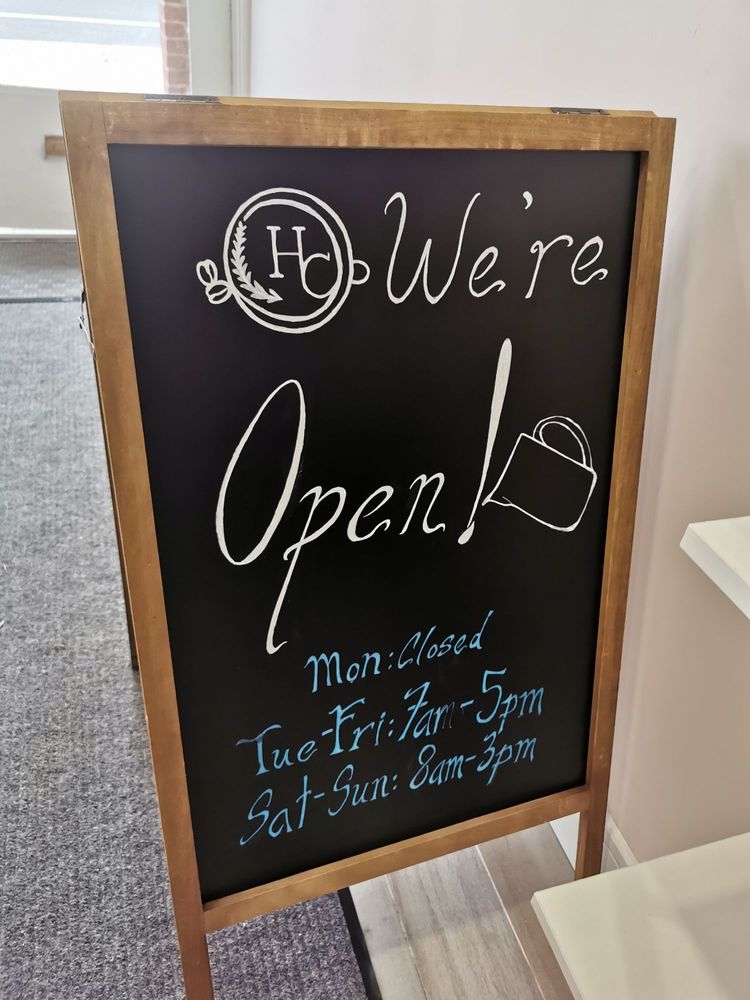 HC We're
Open!
Mon: Closed
Tue-Fri: 7am-5pm
Sat-Sun: 8am-3pm